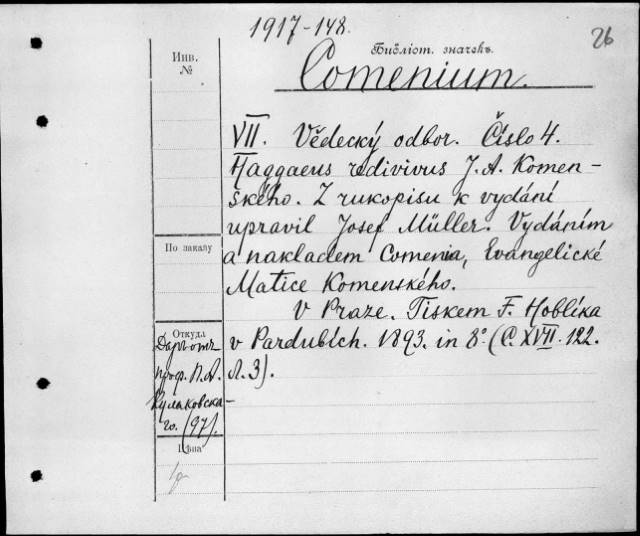 1917-148.
26
Инв.
№
Библіот. значекъ.
Comenium.
VII. Vědecký odbor. Číslo 4.
Haggaeus redivivus J. A. Komen-
ského. Z rukopisu k vydání
upravil Josef Müller. Vydáním
a nakladem Comenia, Evangelické
Matice Komenského.
v Praze. Tiskem F. Hoblíka
v Pardubích. 1893. in 8° (C. XVII. 122.
л. 3).
По заказу
Откуда
Даръ отъ
проф. П. А.
Кулаковска-
го. (97).
Цѣна